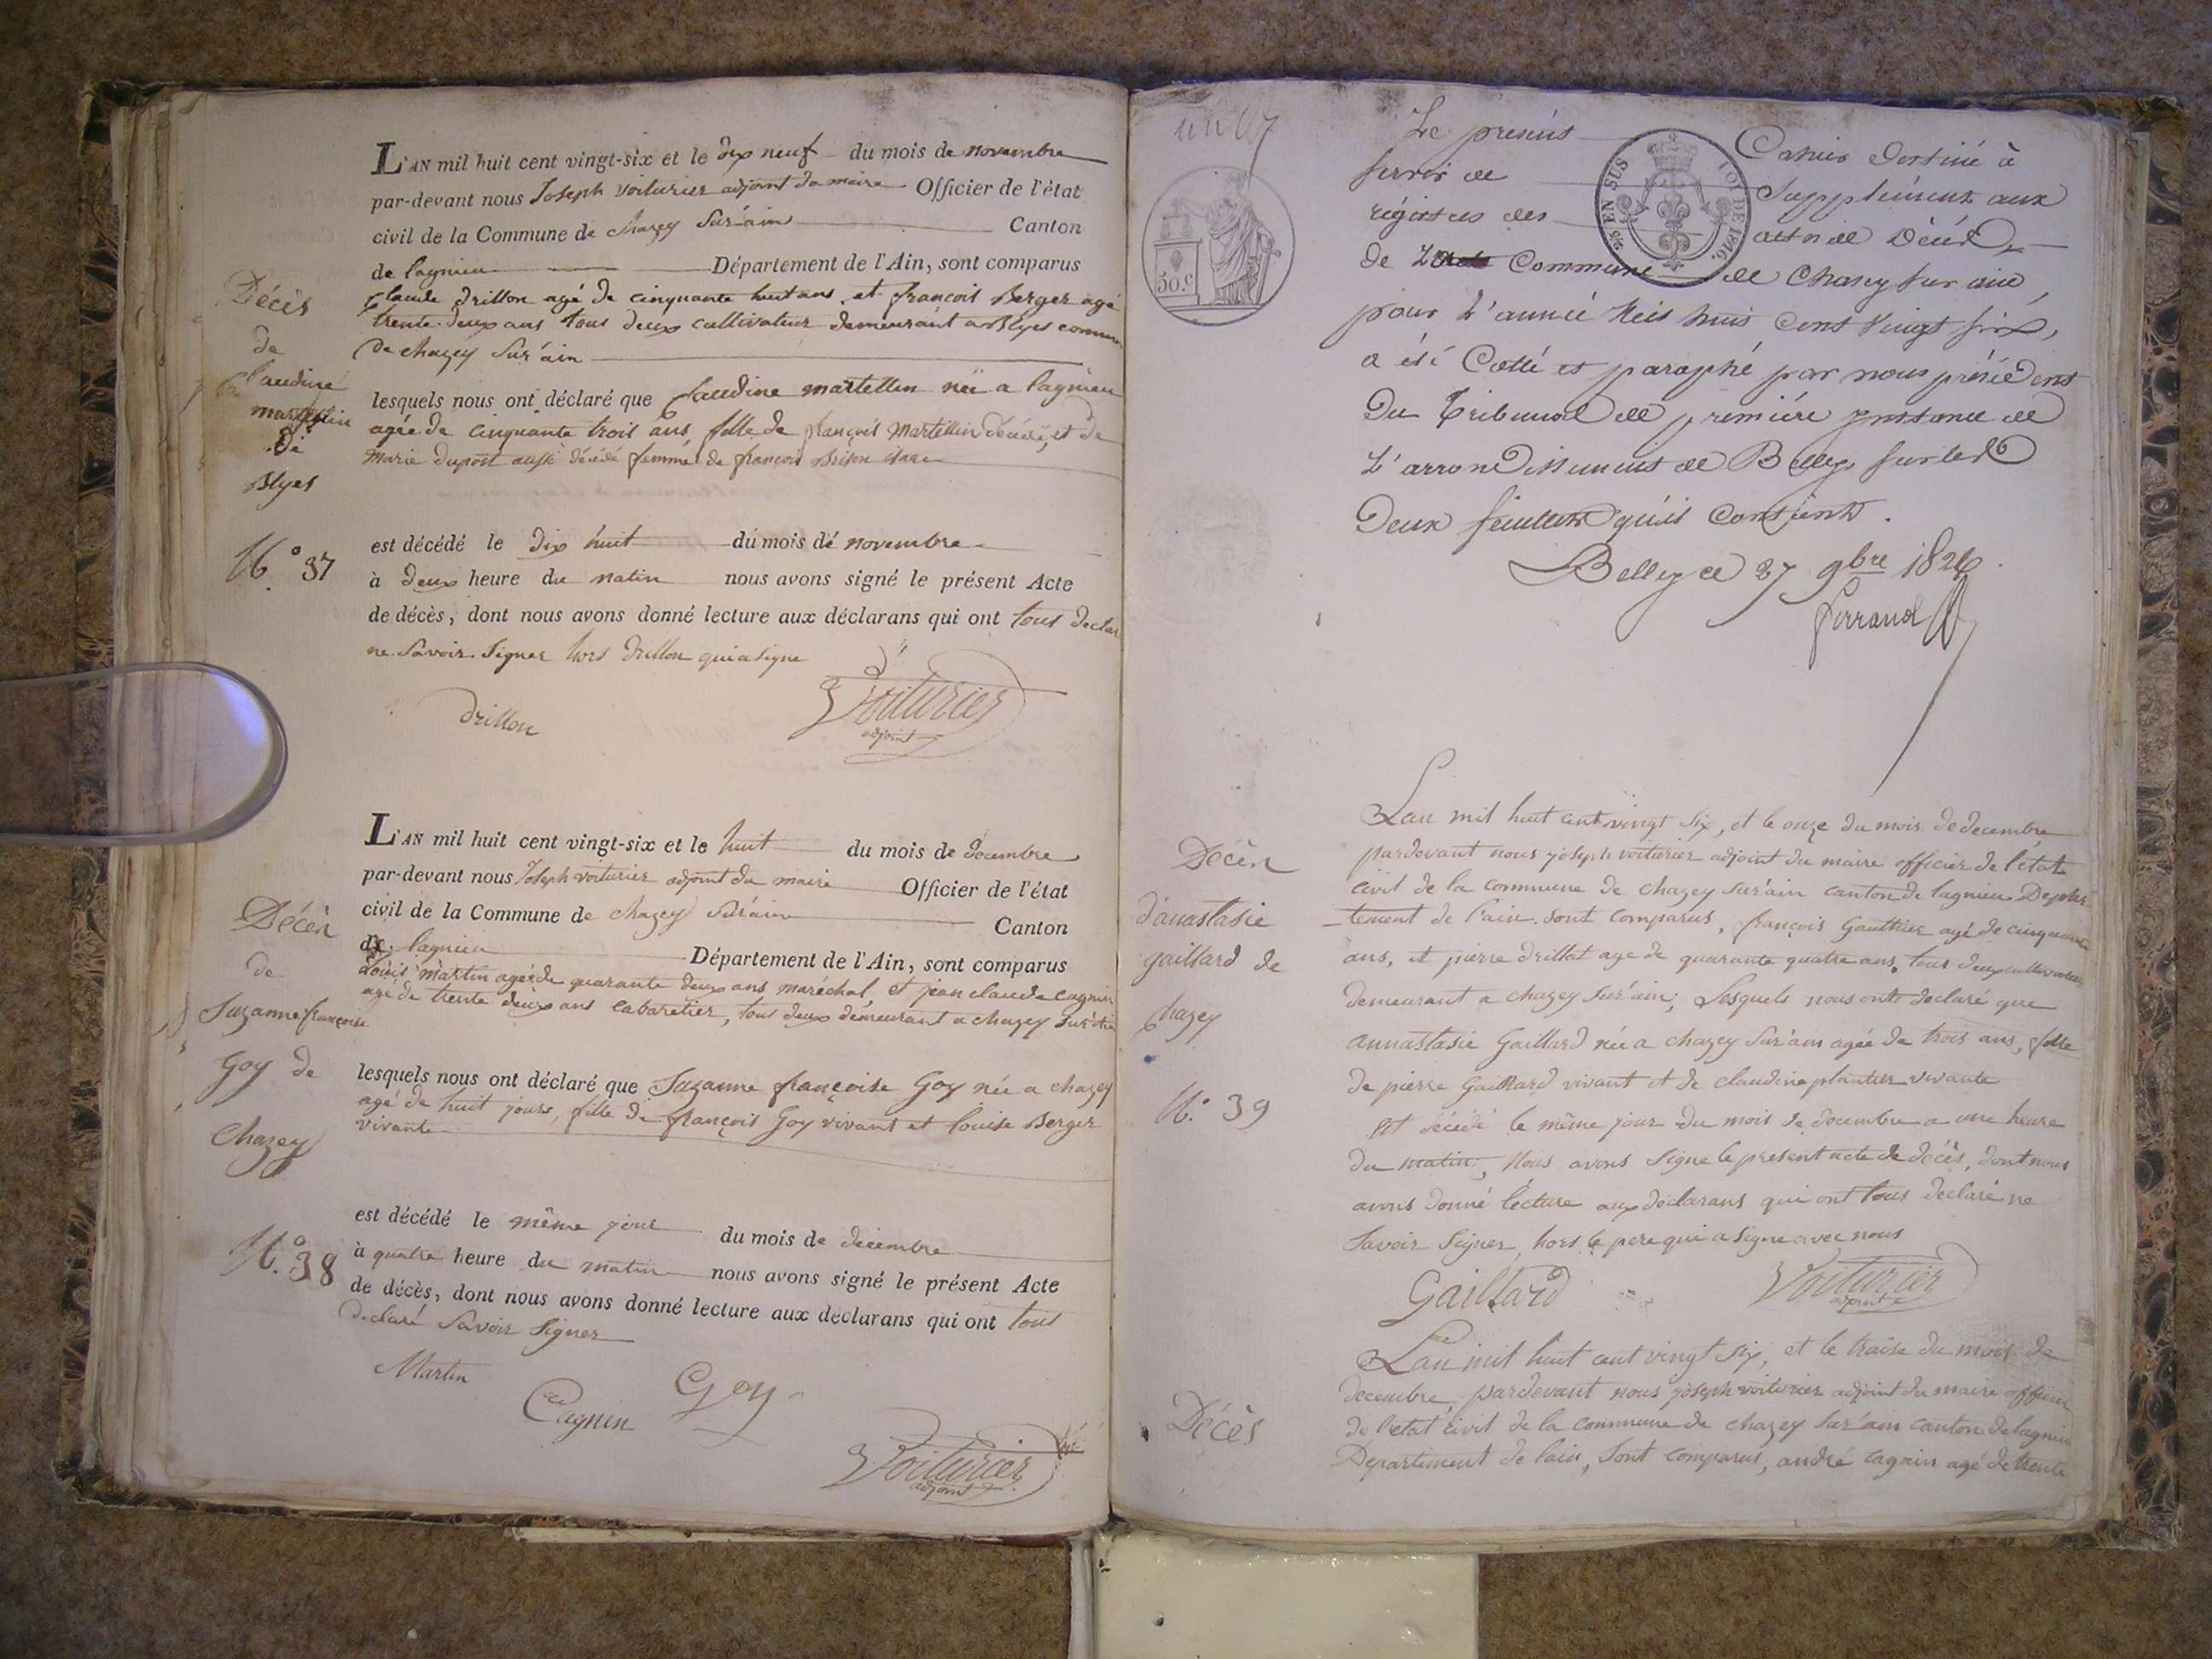 L'AN mil huit cent vingt-six et le dix neuf du mois de novembre
par-devant nous Joseph voiturier adjoint du maire Officier de l'état
civil de la Commune de chazey Sur'ain Canton
de lagnieu Département de l'Ain, sont comparus
Claude Drillon agé de cinquante huit ans, et françois Berger agé
trente deux ans tous deux cultivateur demeurant a Blyes commune
de chazey Sur'ain
lesquels nous ont déclaré que Claudine martellin née a lagnieu
agée de cinquante trois ans, fille de françois Martellin décédé, et de
Marie dupost aussi décédé femme de françois
est décédé le dix huit du mois de novembre
à deux heure du matin nous avons signé le présent Acte
de décès, dont nous avons donné lecture aux déclarans qui ont tous declaré
ne Savoir Signer hors Drillon qui a signe
drillon
Voiturier
adjoint
Décès
de
Claudine
martellin
de
Blyes
N.° 37
L'AN mil huit cent vingt-six et le huit du mois de decembre
par-devant nous Joseph voiturier adjoint du maire Officier de l'état
civil de la Commune de chazey Sur'ain Canton
de lagnieu Département de l'Ain, sont comparus
Louis martin agé de quarante deux ans maréchal, et jean claude cagnin
agé de trente deux ans cabaretier, tous deux demeurant a chazey Sur'ain
lesquels nous ont déclaré que Suzanne françoise Goy née a chazey
agé de huit jours, fille de françois Goy vivant et louise Berger
vivante
est décédé le même jour du mois de decembre
à quatre heure du matin nous avons signé le présent Acte
de décès, dont nous avons donné lecture aux déclarans qui ont tous
declaré Savoir Signer
Martin
Cagnin
Goy
Voiturier
adjoint
Décès
de
Suzanne françoise
Goy de
Chazey
N.° 38
50.C
EN SUS
LOI DE 1816
Le present Cahier destiné à
servir de Supplément aux
régistres des actes de Décès
de la Commune de Chazey sur ain,
pour L'année Mil huit Cent Vingt six,
a été Cotté et paraphé par nous président
Du Tribunal de première instance de
L'arrondissement de Belley sur les
Deux feuillets qu'il Contient.
Belley ce 27 9bre 1826.
ferrand
Lan mil huit cent vingt six, et le onze du mois de decembre
pardevant nous joseph voiturier adjoint du maire officier de l'état
civil de la commune de chazey Sur'ain canton de lagnieu Depar
tement de l'ain. Sont comparus, françois Gauthier agé de cinquante
ans, et pierre drillat age de quarante quatre ans, tous deux cultivateurs
demeurant a chazey Sur'ain, Lesquels nous ont declaré que
annastasie Gaillard née a chazey Sur'ain agée de trois ans, fille
de pierre Gaillard vivant et de claudine plantier vivante
est décédé le même jour du mois de decembre a une heure
du matin, Nous avons Signe le present acte de décès, dont nous
avons donné lecture aux déclarans qui ont tous declaré ne
Savoir Signer, hors le pere qui a signe avec nous
Gaillard
Voiturier
adjoint
Décès
d'anastasie
gaillard de
Chazey
N.° 39
Lan mil huit cent vingt six, et le traise du mois de
decembre, pardevant nous joseph voiturier adjoint du maire officier
de l'etat civil de la commune de chazey Sur'ain canton de lagnieu
Departement de lain, Sont comparus, andré cagnin agé de trente
Décès